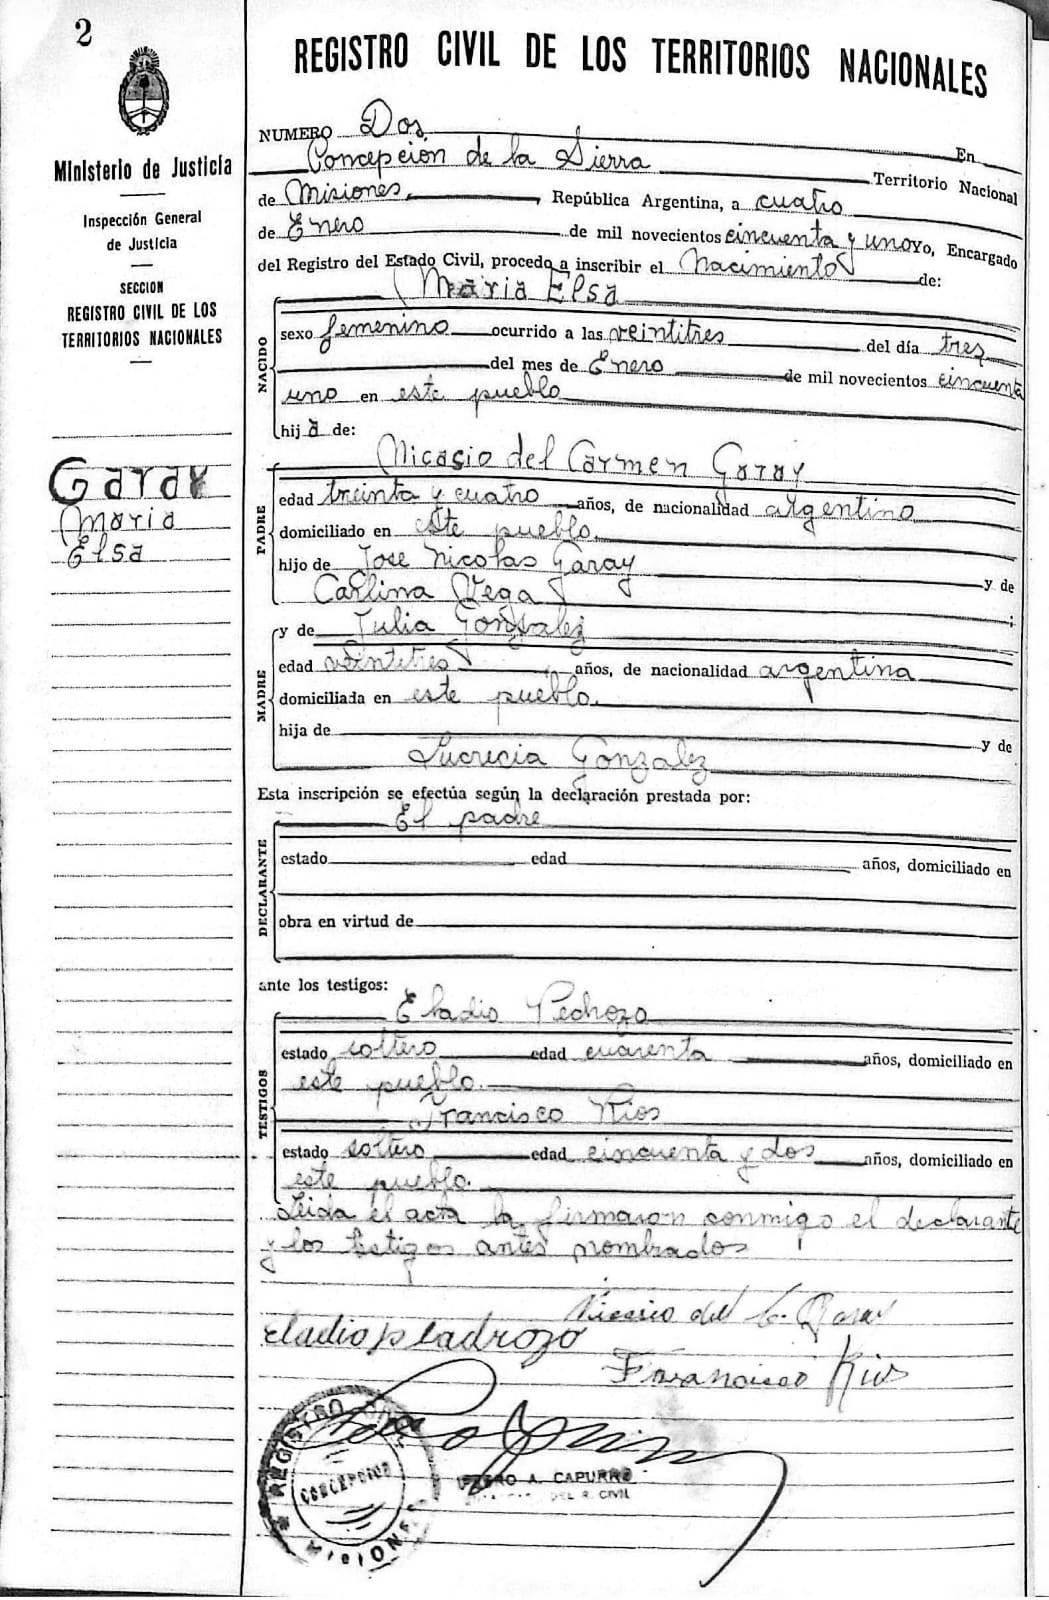 2
REGISTRO CIVIL DE LOS TERRITORIOS NACIONALES
Ministerio de Justicia
Inspección General
de Justicia
SECCION
REGISTRO CIVIL DE LOS
TERRITORIOS NACIONALES
Garay
Maria
Elsa
NUMERO Dos En
Concepción de la Sierra Territorio Nacional
de Misiones, República Argentina, a cuatro
de Enero de mil novecientos cincuenta y uno yo, Encargado
del Registro del Estado Civil, procedo a inscribir el Nacimiento de:
Maria Elsa
NACIDO
sexo femenino ocurrido a las veintitres del día tres
del mes de Enero de mil novecientos cincuenta
uno en este pueblo
hij a de:
Nicasio del Carmen Garay
PADRE
edad treinta y cuatro años, de nacionalidad argentino
domiciliado en este pueblo.
hijo de Jose Nicolas Garay y de
Carlina Vega ;
y de Julia Gonzalez
MADRE
edad veintitres años, de nacionalidad argentina
domiciliada en este pueblo.
hija de y de
Lucrecia Gonzalez
Esta inscripción se efectúa según la declaración prestada por:
El padre
DECLARANTE
estado edad años, domiciliado en
obra en virtud de
ante los testigos:
Eladio Pedrozo
TESTIGOS
estado soltero edad cuarenta años, domiciliado en
este pueblo.
Francisco Rios
estado soltero edad cincuenta y dos años, domiciliado en
este pueblo.
Leida el acta la firmaron conmigo el declarante
y los testigos antes nombrados
Nicasio del C. Garay
eladio peadrozo
Francisco Rios
REGISTRO CIVIL
CONCEPCION
MISIONES
PEDRO A. CAPURRO
DEL R. CIVIL